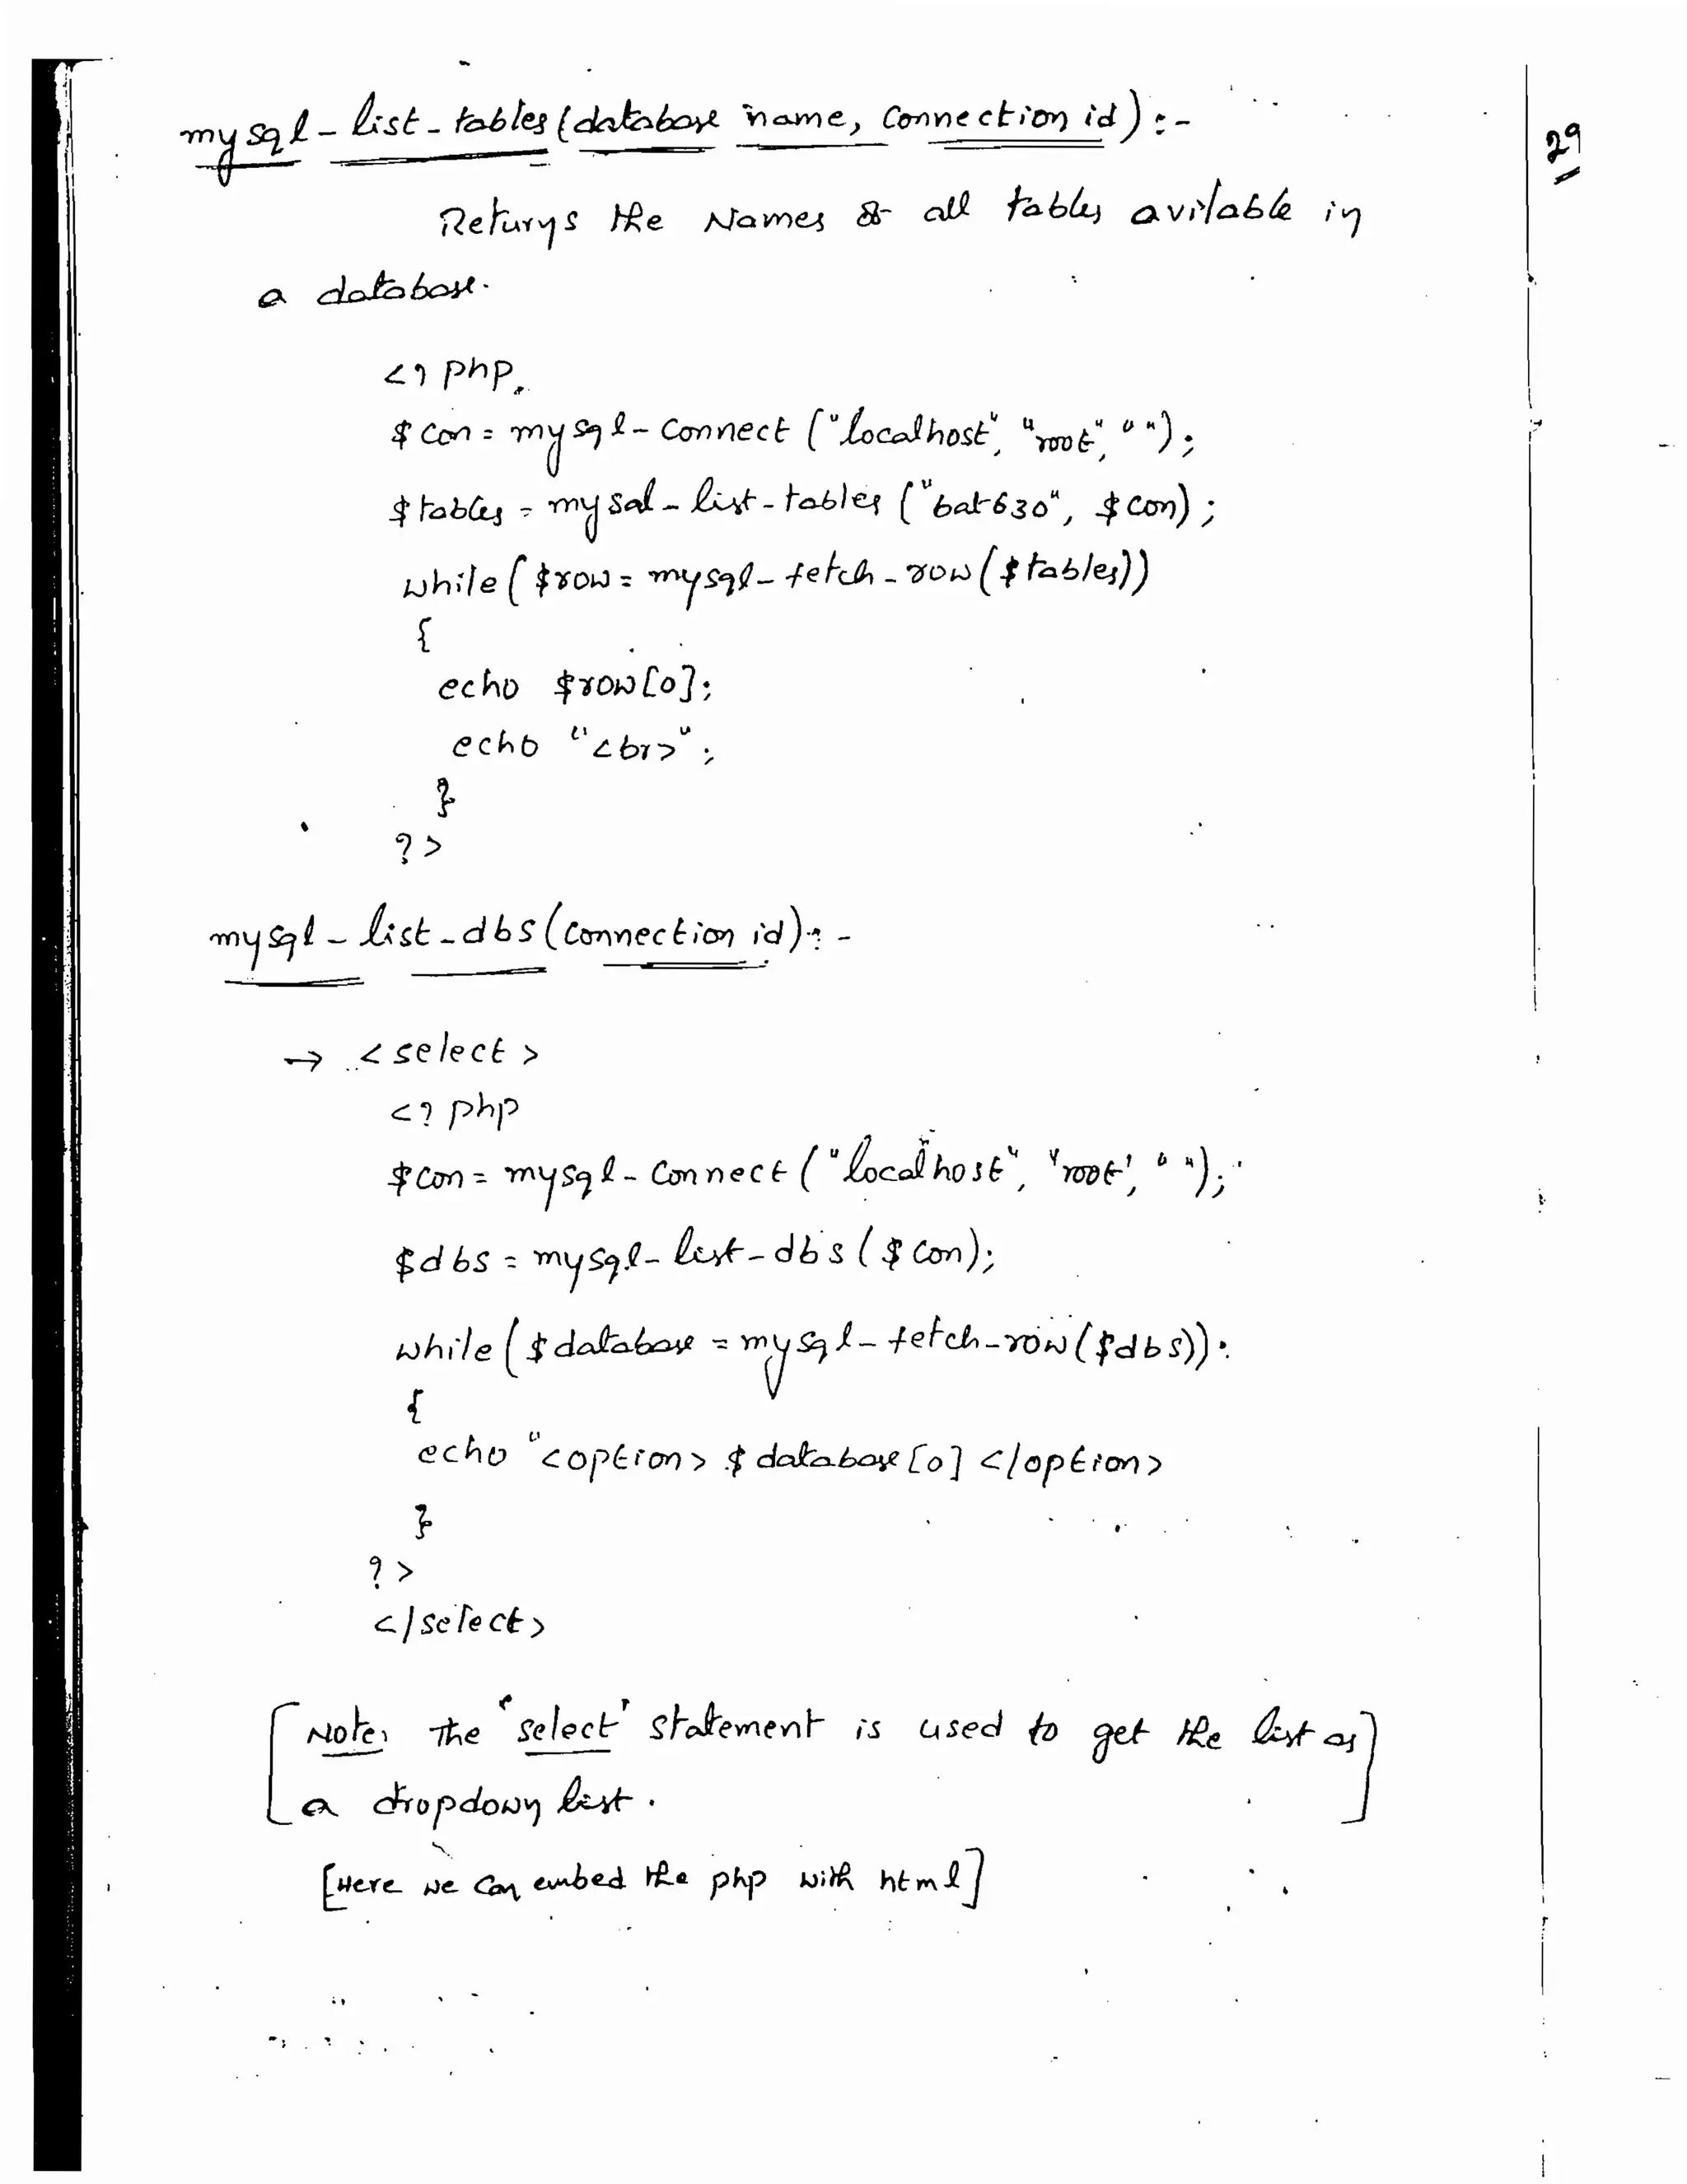 mysql-list-tables(database name, connection id):-
29
Returns the Names of all tables avilable in
a database.
<? php
$con = mysql-connect ("localhost", "root", " ");
$tables = mysql-list-tables ("bat630", $con);
while ($row = mysql-fetch-row ($tables))
{
echo $row[0];
echo "<br>";
}
?>
mysql-list-dbs (connection id):-
→ <select>
<? php
$con = mysql-connect ("localhost", "root', " ");
$dbs = mysql-list-dbs ($con);
while ($database = mysql-fetch-row ($dbs)):
{
echo "<option> $database[0] </option>
}
?>
</select>
[Note: The 'select' statement is used to get the list as]
a dropdown list.
[Here we can embed the php with html]